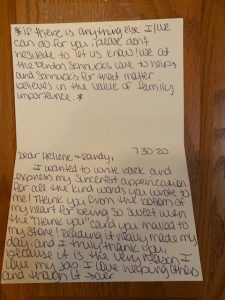 *if there is anything else I/we
can do for you please don't
hesitate to let us know! We at
the Fenton Schnucks love to help
and Schnucks for that matter
believes in the value of family
importance. *
Dear Helene & Randy, 7.30.20
I wanted to write back and
express my sincerest appreciation
for all the kind words you wrote to
me! Thank you from the bottom of
my heart for being so sweet with
the "thank you" card you mailed to
my store! Reading it really made my
day, and I truly thank you
because it is the very reason I
love my job. I love helping others
and though it